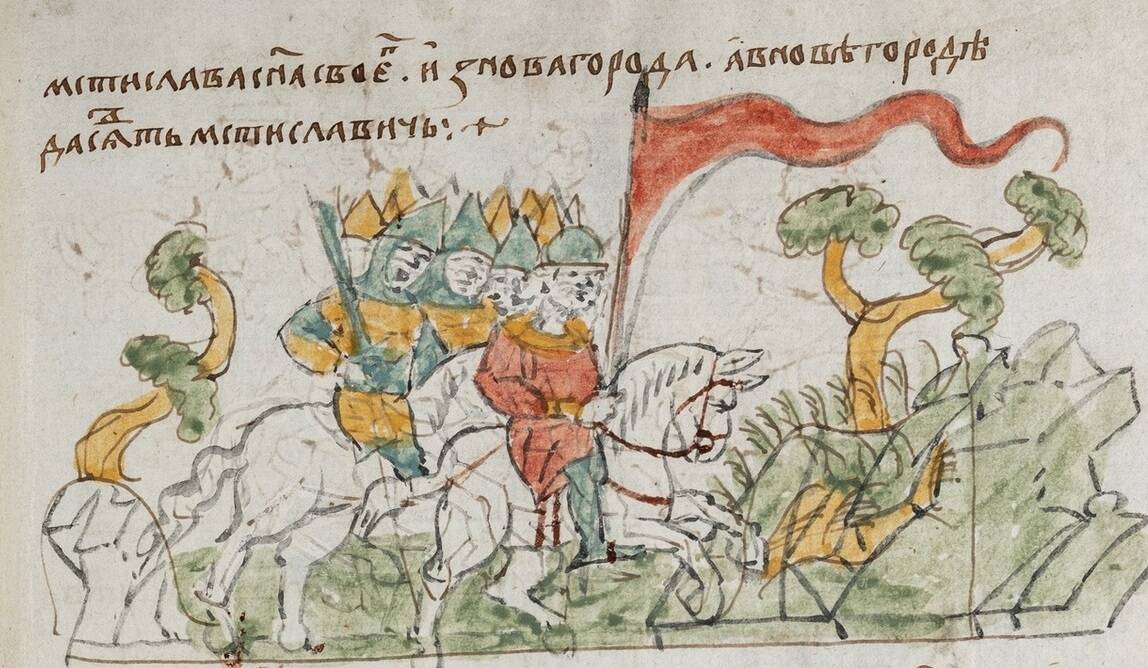 мстислава сн҃а своеⷢ҇ . и҆ зновагорода . а҆вновѣгородѣ
да сѧⷣть мстиславичь :~